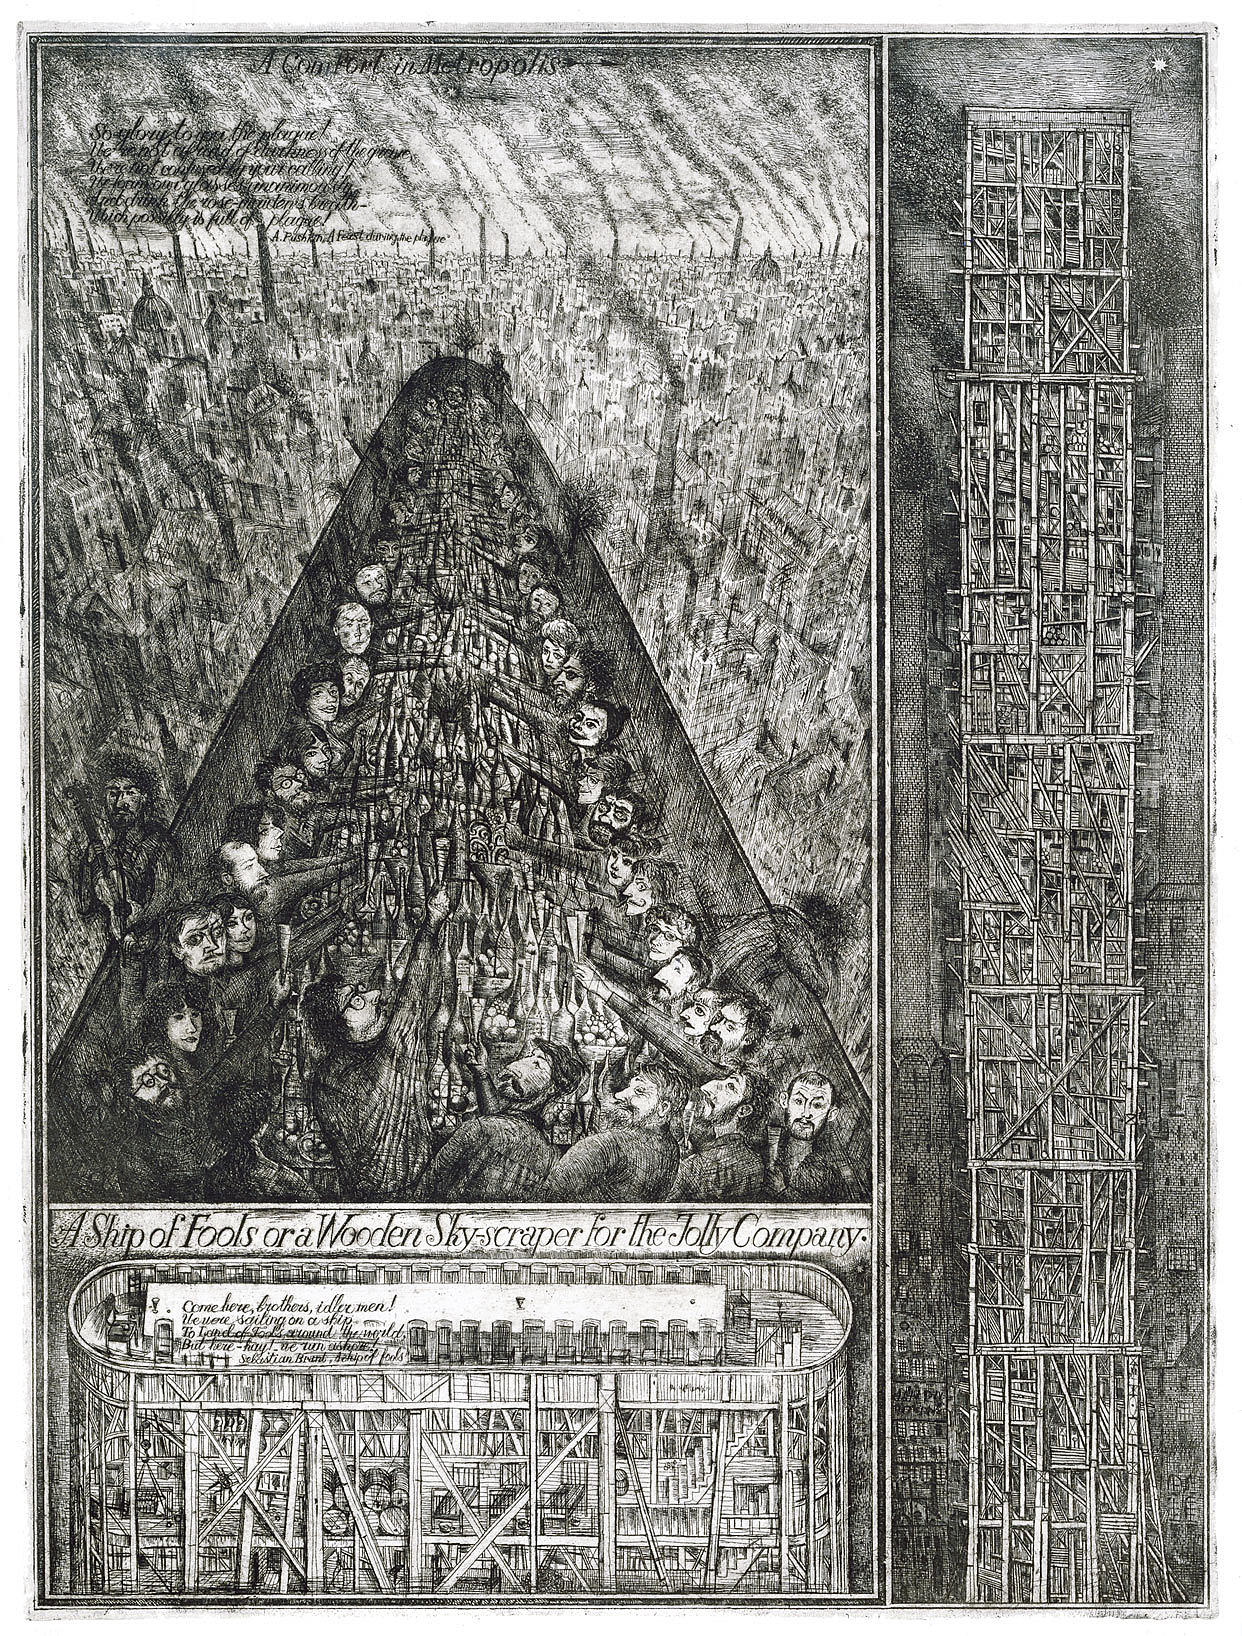 A Comfort in Metropolis
So glory to you the plague!
We're not afraid of darkness of the grave,
We're not confused by your calling!
We foam our glasses
and drink the rose-maidens breath-
Which possibly is full of plague!
A. Pushkin, A Feast during the plague
A Ship of Fools or a Wooden Sky-scraper for the Jolly Company.
Come here, brothers, idler men!
We were sailing on a ship
To Land of Fools around the world,
But here - hay! - we run ashore!
Sebastian Brant, A ship of fools